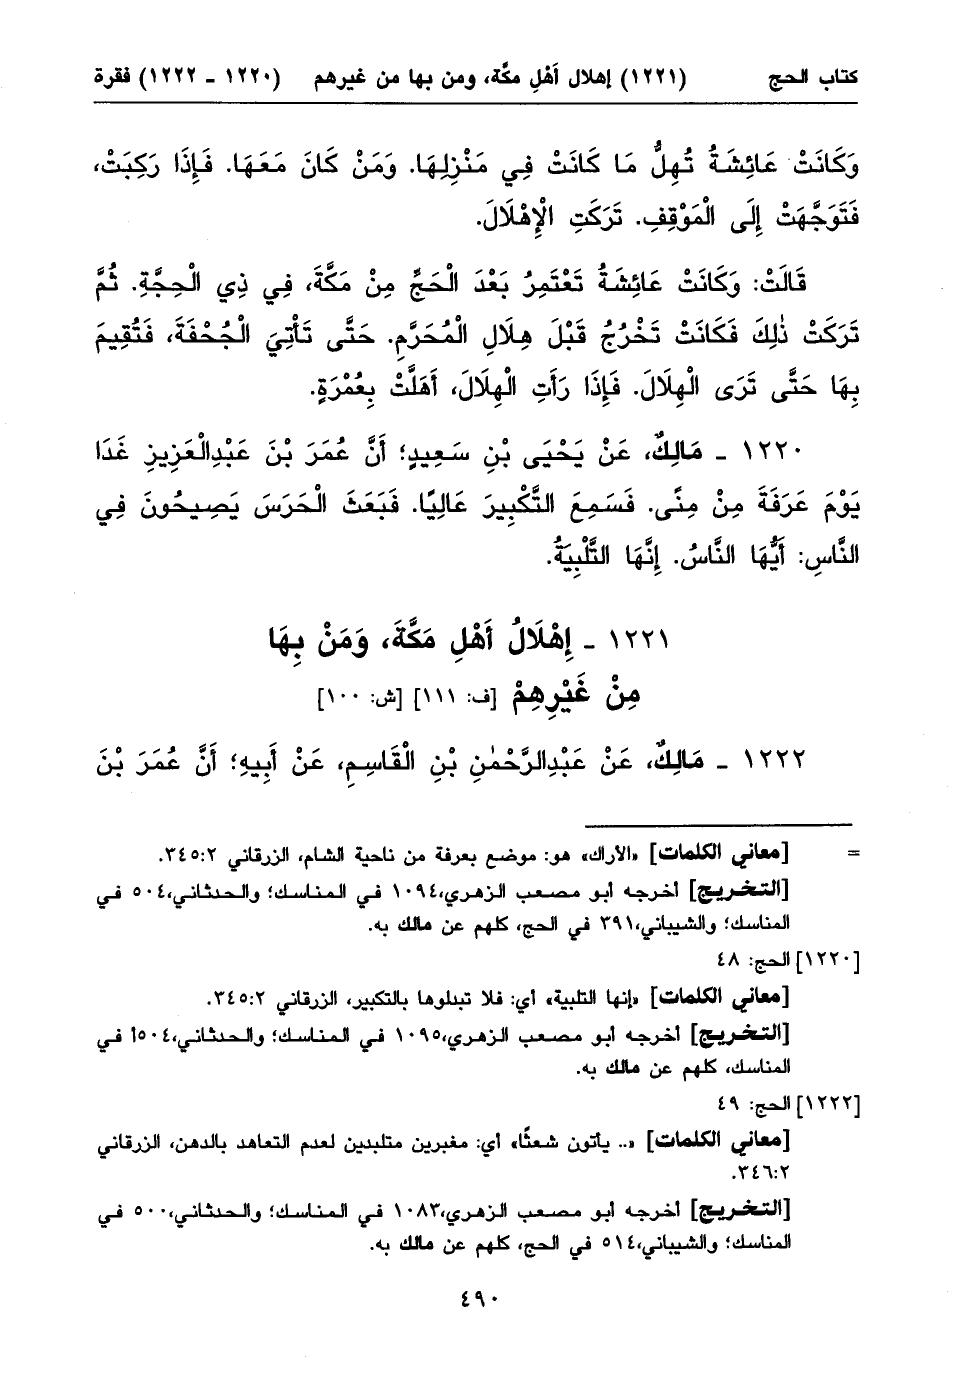 كتاب الحج (١٢٢١) إهلال أَهْلِ مكَّة، ومن بها من غيرهم (١٢٢٠ ـ ١٢٢٢) فقرة
وَكَانَتْ عَائِشَةُ تُهِلُّ مَا كَانَتْ فِي مَنْزِلِهَا. وَمَنْ كَانَ مَعَهَا. فَإِذَا رَكِبَتْ،
فَتَوَجَّهَتْ إِلَى الْمَوْقِفِ. تَرَكَتِ الْإِهْلَالَ.
قَالَتْ: وَكَانَتْ عَائِشَةُ تَعْتَمِرُ بَعْدَ الْحَجِّ مِنْ مَكَّةَ، فِي ذِي الْحِجَّةِ. ثُمَّ
تَرَكَتْ ذٰلِكَ فَكَانَتْ تَخْرُجُ قَبْلَ هِلَالِ الْمُحَرَّمِ. حَتَّى تَأْتِيَ الْجُحْفَةَ، فَتُقِيمَ
بِهَا حَتَّى تَرَى الْهِلَالَ. فَإِذَا رَأَتِ الْهِلَالَ، أَهَلَّتْ بِعُمْرَةٍ.
١٢٢٠ ـ مَالِكٌ، عَنْ يَحْيَى بْنِ سَعِيدٍ؛ أَنَّ عُمَرَ بْنَ عَبْدِالْعَزِيزِ غَدَا
يَوْمَ عَرَفَةَ مِنْ مِنًى. فَسَمِعَ التَّكْبِيرَ عَالِيًا. فَبَعَثَ الْحَرَسَ يَصِيحُونَ فِي
النَّاسِ: أَيُّهَا النَّاسُ. إِنَّهَا التَّلْبِيَةُ.
١٢٢١ ـ إِهْلَالُ أَهْلِ مَكَّةَ، وَمَنْ بِهَا
مِنْ غَيْرِهِمْ [ف: ١١١] [ش: ١٠٠]
١٢٢٢ ـ مَالِكٌ، عَنْ عَبْدِالرَّحْمٰنِ بْنِ الْقَاسِمِ، عَنْ أَبِيهِ؛ أَنَّ عُمَرَ بْنَ
= [معاني الكلمات] «الأراك» هو: موضع بعرفة من ناحية الشام، الزرقاني ٣٤٥:٢.
[التخريج] أخرجه أبو مصعب الزهري،١٠٩٤ في المناسك؛ والحدثاني،٥٠٤ في
المناسك؛ والشيباني،٣٩١ في الحج، كلهم عن مالك به.
[١٢٢٠] الحج: ٤٨
[معاني الكلمات] «إنها التلبية» أي: فلا تبدلوها بالتكبير، الزرقاني ٣٤٥:٢.
[التخريج] أخرجه أبو مصعب الزهري،١٠٩٥ في المناسك؛ والحدثاني،٥٠٤أ في
المناسك، كلهم عن مالك به.
[١٢٢٢] الحج: ٤٩
[معاني الكلمات] «.. يأتون شعثًا» أي: مغبرين متلبدين لعدم التعاهد بالدهن، الزرقاني
٣٤٦:٢.
[التخريج] أخرجه أبو مصعب الزهري،١٠٨٣ في المناسك؛ والحدثاني،٥٠٠ في
المناسك؛ والشيباني،٥١٤ في الحج، كلهم عن مالك به.
٤٩٠